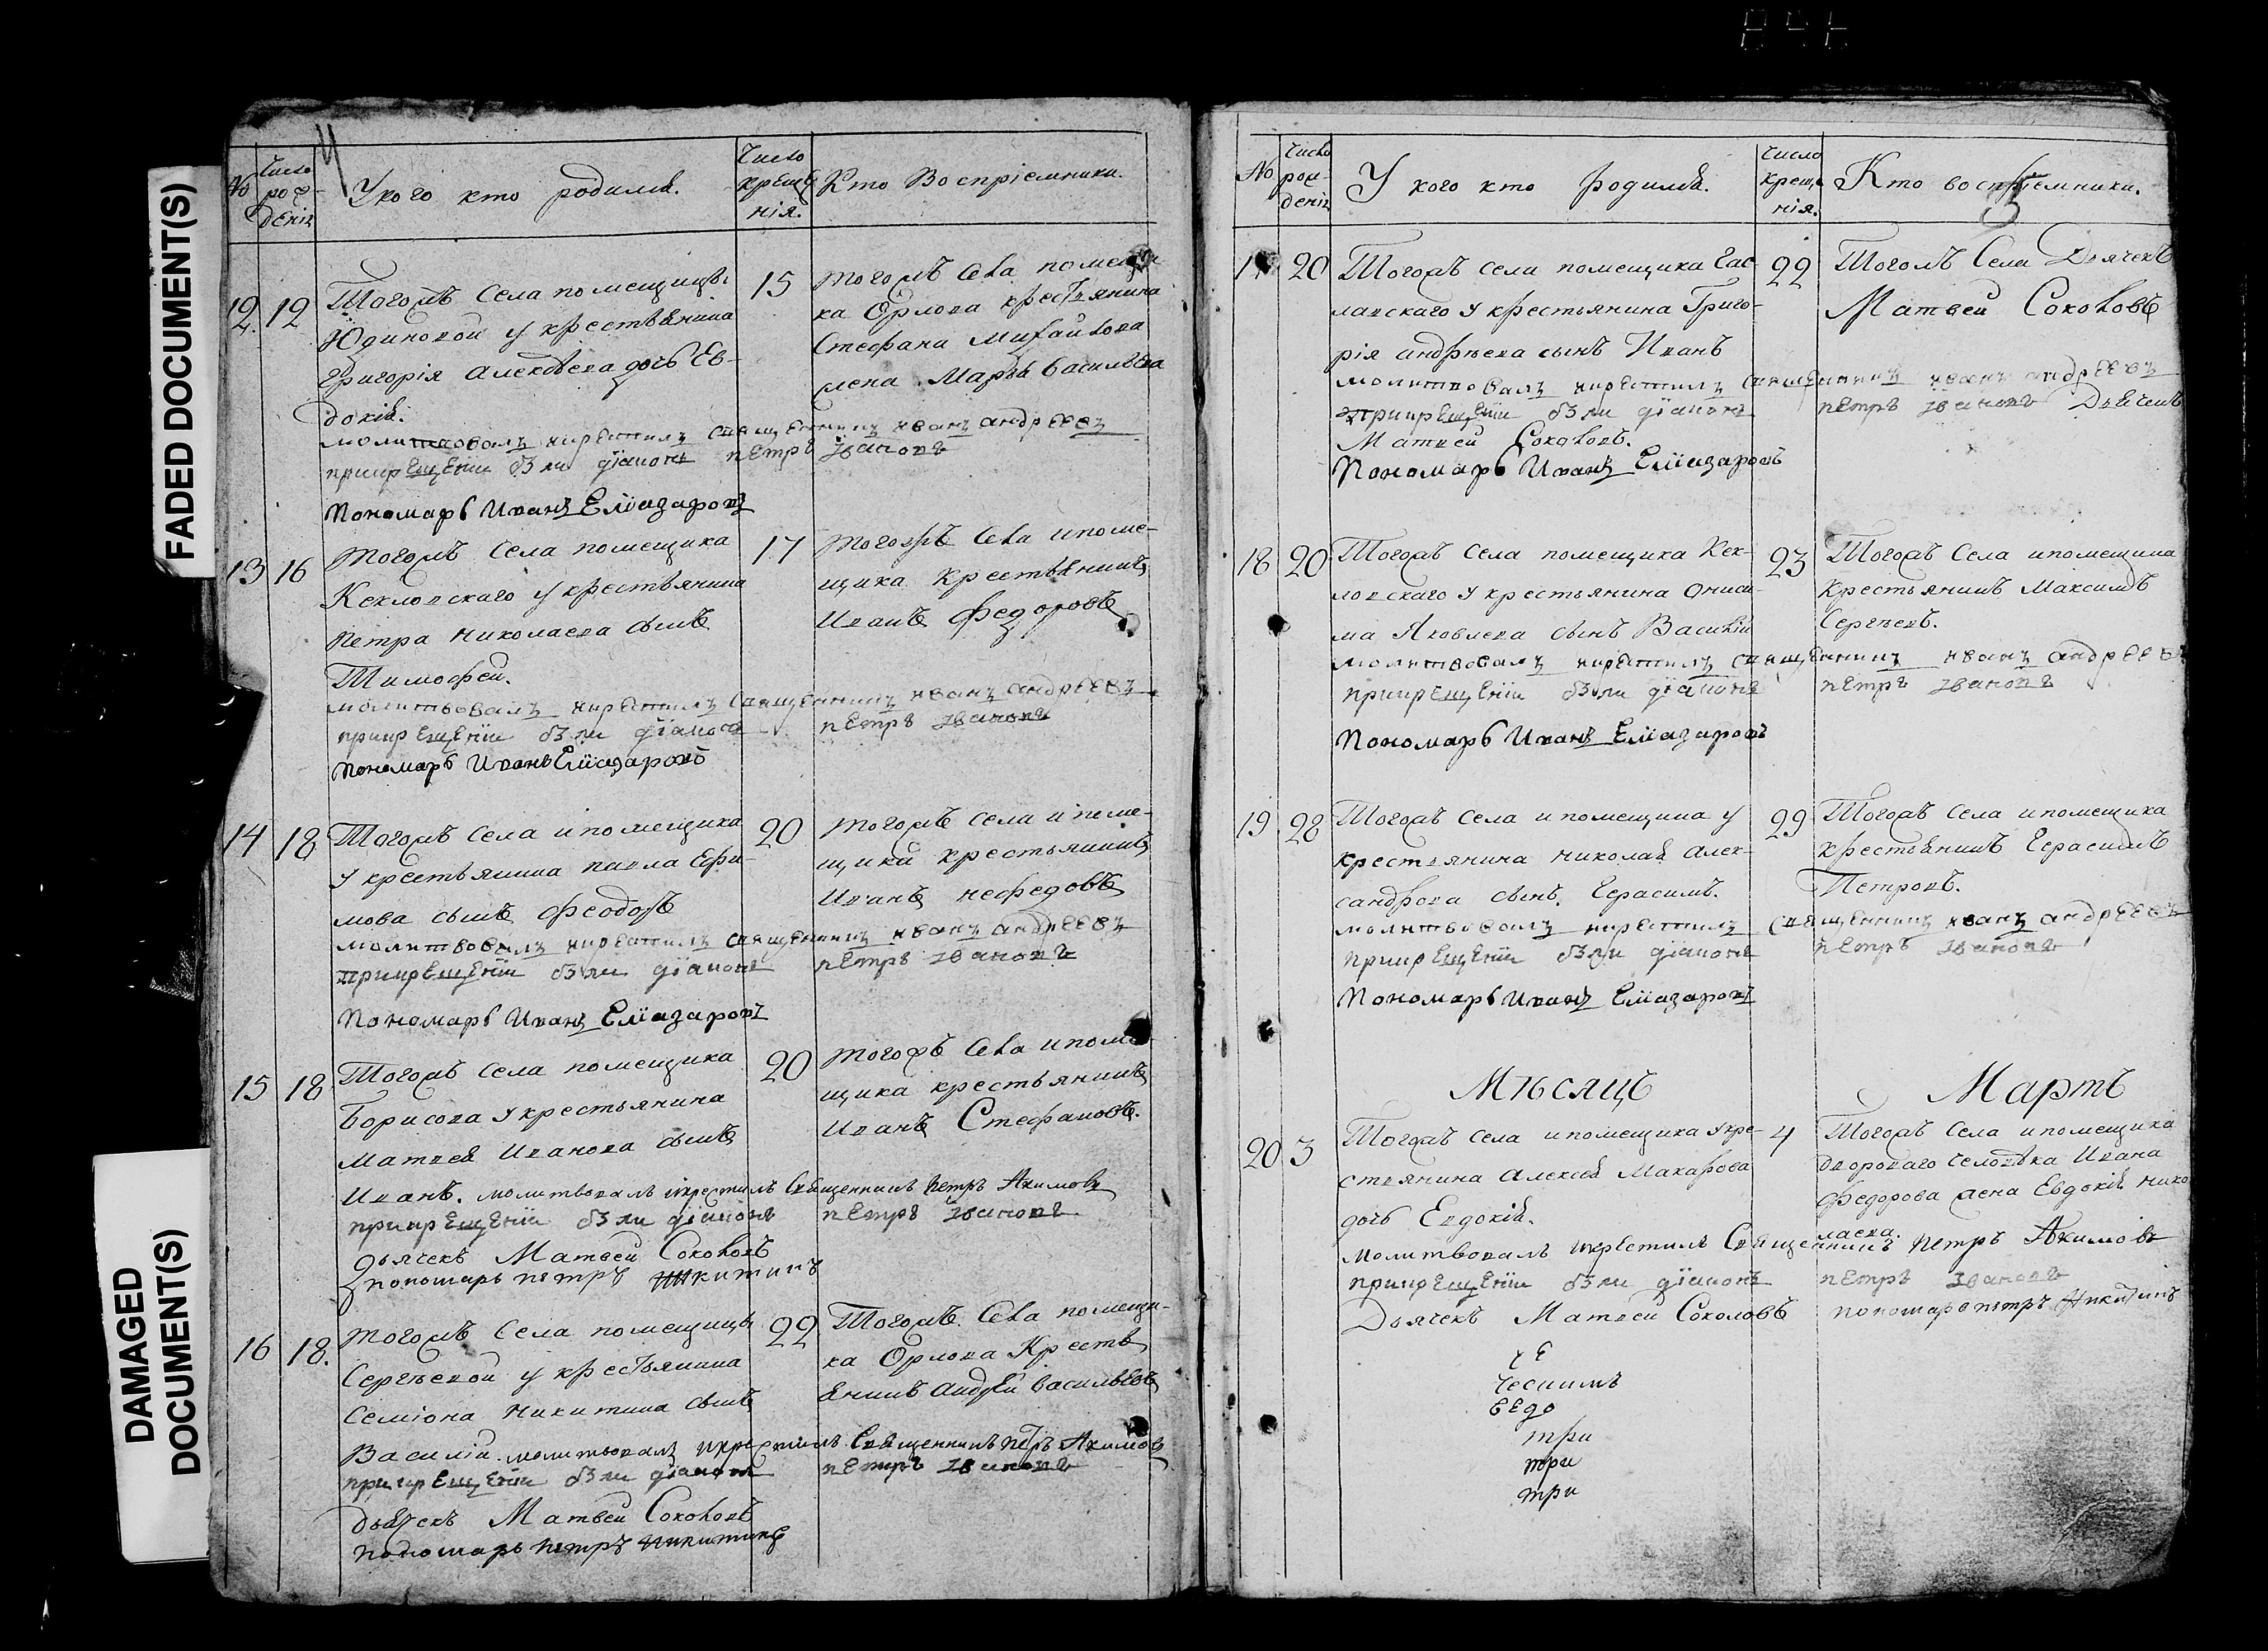 FADED DOCUMENT(S)
DAMAGED
DOCUMENT(S)
No
Число
рож-
денія
У кого кто родился.
Число
креще
нія.
Кто Воспріемники.
12. 12
Тогожъ Села помещицы
Юдиновой у крестьянина
Григорія Алексѣева дочь Ев-
докія.
молитвовалъ икрестилъ священникъ иванъ андреевъ
прикрещеніи были діаконъ петръ ивановъ
Пономарь Иванъ Еліазаровъ
15
тогожъ Села помещи
ка Орлова крестьянина
Стефана Михайлова
жена Марья васильева
13 16
тогожъ Села помещика
Кекловскаго у крестьянина
Петра Николаева сынъ
Тимофей.
молитвовалъ икрестилъ священникъ иванъ андреевъ
прикрещеніи были діаконъ петръ ивановъ
Пономарь Иванъ Еліазаровъ
17
тогожъ Села ипоме-
щика крестьянинъ
Иванъ Федоровъ
14 18
Тогожъ Села ипомещика
у крестьянина павла Ефи-
мова сынъ Феодоръ
молитвовалъ икрестилъ священникъ иванъ андреевъ
прикрещеніи были діаконъ петръ ивановъ
Пономарь Иванъ Еліазаровъ
20
тогожъ села ипоме-
щика крестьянинъ
Иванъ нефедовъ
15 18
Тогожъ Села помещика
Борисова у крестьянина
Матвея Иванова сынъ
Иванъ. молитвовалъ икрестилъ Священникъ Петръ Акимовъ
прикрещеніи были діаконъ петръ ивановъ
Дьячекъ Матвей Соколовъ
пономарь петръ никитинъ
20
тогожъ Села ипоме-
щика крестьянинъ
Иванъ Стефановъ.
16 18.
тогожъ Села помещицы
Сергѣевой у крестьянина
Семіона Никитина сынъ
Василій. молитвовалъ икрестилъ Священникъ Петръ Акимовъ
прикрещеніи были діаконъ петръ ивановъ
Дьячекъ Матвей Соколовъ
пономарь петръ никитинъ
22
Тогожъ Села помещи-
ка Орлова Кресть
янинъ Андрей васильевъ
No
Число
рож-
денія
У кого кто родился.
Число
креще
нія.
Кто воспріемники.
20
Тогожъ села помещика
лавскаго у крестьянина Григо-
рія андрѣева сынъ Иванъ
молитвовалъ икрестилъ священникъ иванъ андреевъ
прикрещеніи были діаконъ петръ ивановъ Дьячекъ
Матвей Соколовъ.
Пономарь Иванъ Еліазаровъ
22
Тогожъ Села Дьячекъ
Матвей Соколовъ
18 20
Тогожъ Села помещика Кек-
ловскаго у крестьянина Ониси-
ма Яковлева сынъ Василій
молитвовалъ икрестилъ священникъ иванъ андреевъ
прикрещеніи были діаконъ петръ ивановъ
Пономарь Иванъ Еліазаровъ
23
Тогожъ Села ипомещика
Крестьянинъ Максимъ
Сергѣевъ.
19 28
Тогожъ Села и помещика у
крестьянина николая Алек-
сандрова сынъ. Герасимъ.
молитвовалъ икрестилъ священникъ иванъ андреевъ
прикрещеніи были діаконъ петръ ивановъ
Пономарь Иванъ Еліазаровъ
29
Тогожъ Села ипомещика
крестьянинъ Герасимъ
Петровъ.
Мѣсяцъ Мартъ
20 3
Тогожъ Села ипомещика укре-
стьянина Алексея Макарова
дочь Евдокія.
молитвовалъ икрестилъ Священникъ Петръ Акимовъ
прикрещеніи были діаконъ петръ ивановъ
Дьячекъ Матвей Соколовъ пономарь петръ Никитинъ
4
Тогожъ Села ипомещика
двороваго человѣка Ивана
Федорова жена Евдокія нико
лаева.
три
три
три